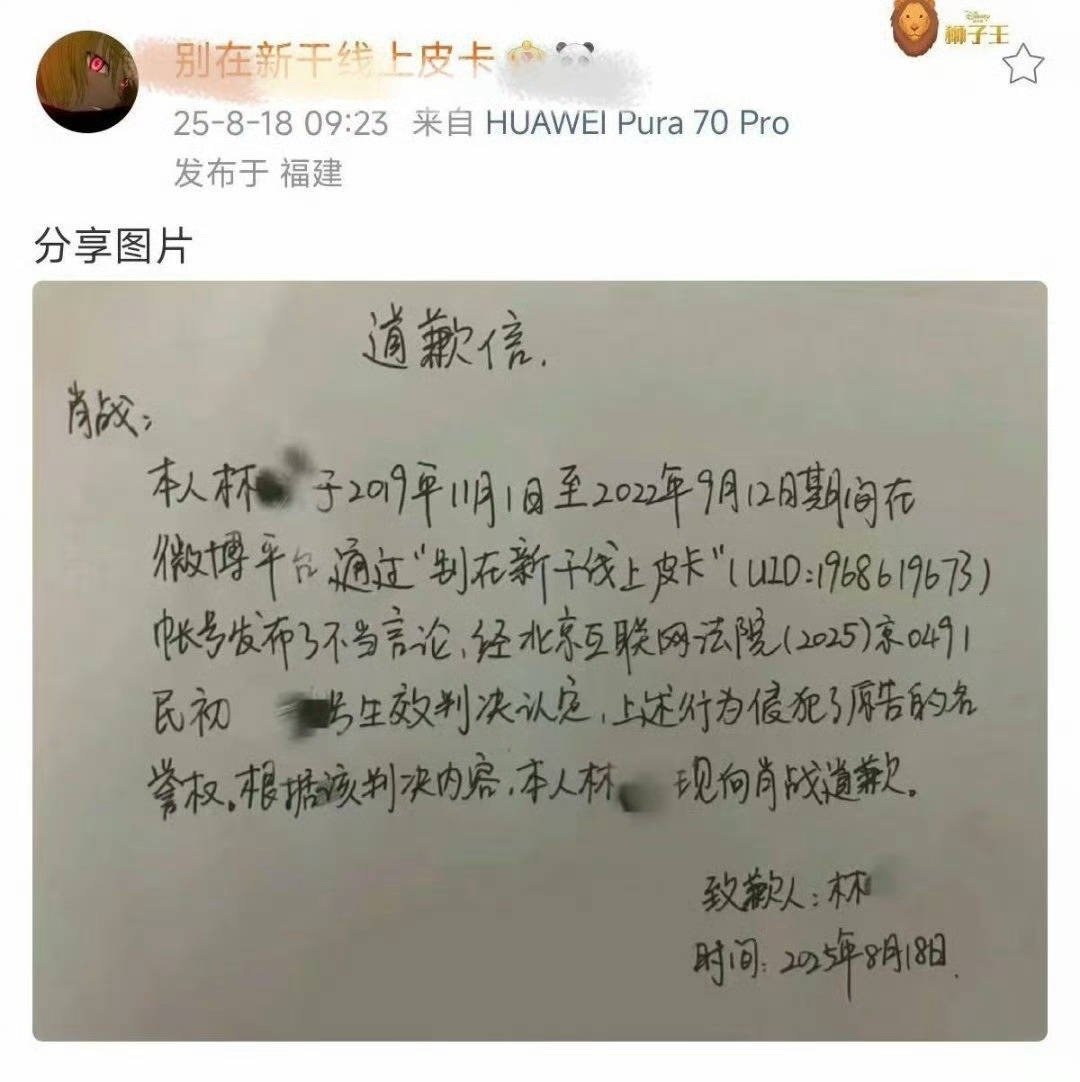 别在新干线上皮卡
Disney
狮子王
25-8-18 09:23 来自 HUAWEI Pura 70 Pro
发布于 福建
分享图片
道歉信.
肖战:
本人林 于2019年11月1日至2022年9月12日期间在
微博平台通过“别在新干线上皮卡”(UID:1968619673)
帐号发布了不当言论,经北京互联网法院(2025)京0491
民初 号生效判决认定,上述行为侵犯了原告的名
誉权。根据该判决内容,本人林 现向肖战道歉。
致歉人:林
时间:2025年8月18日.